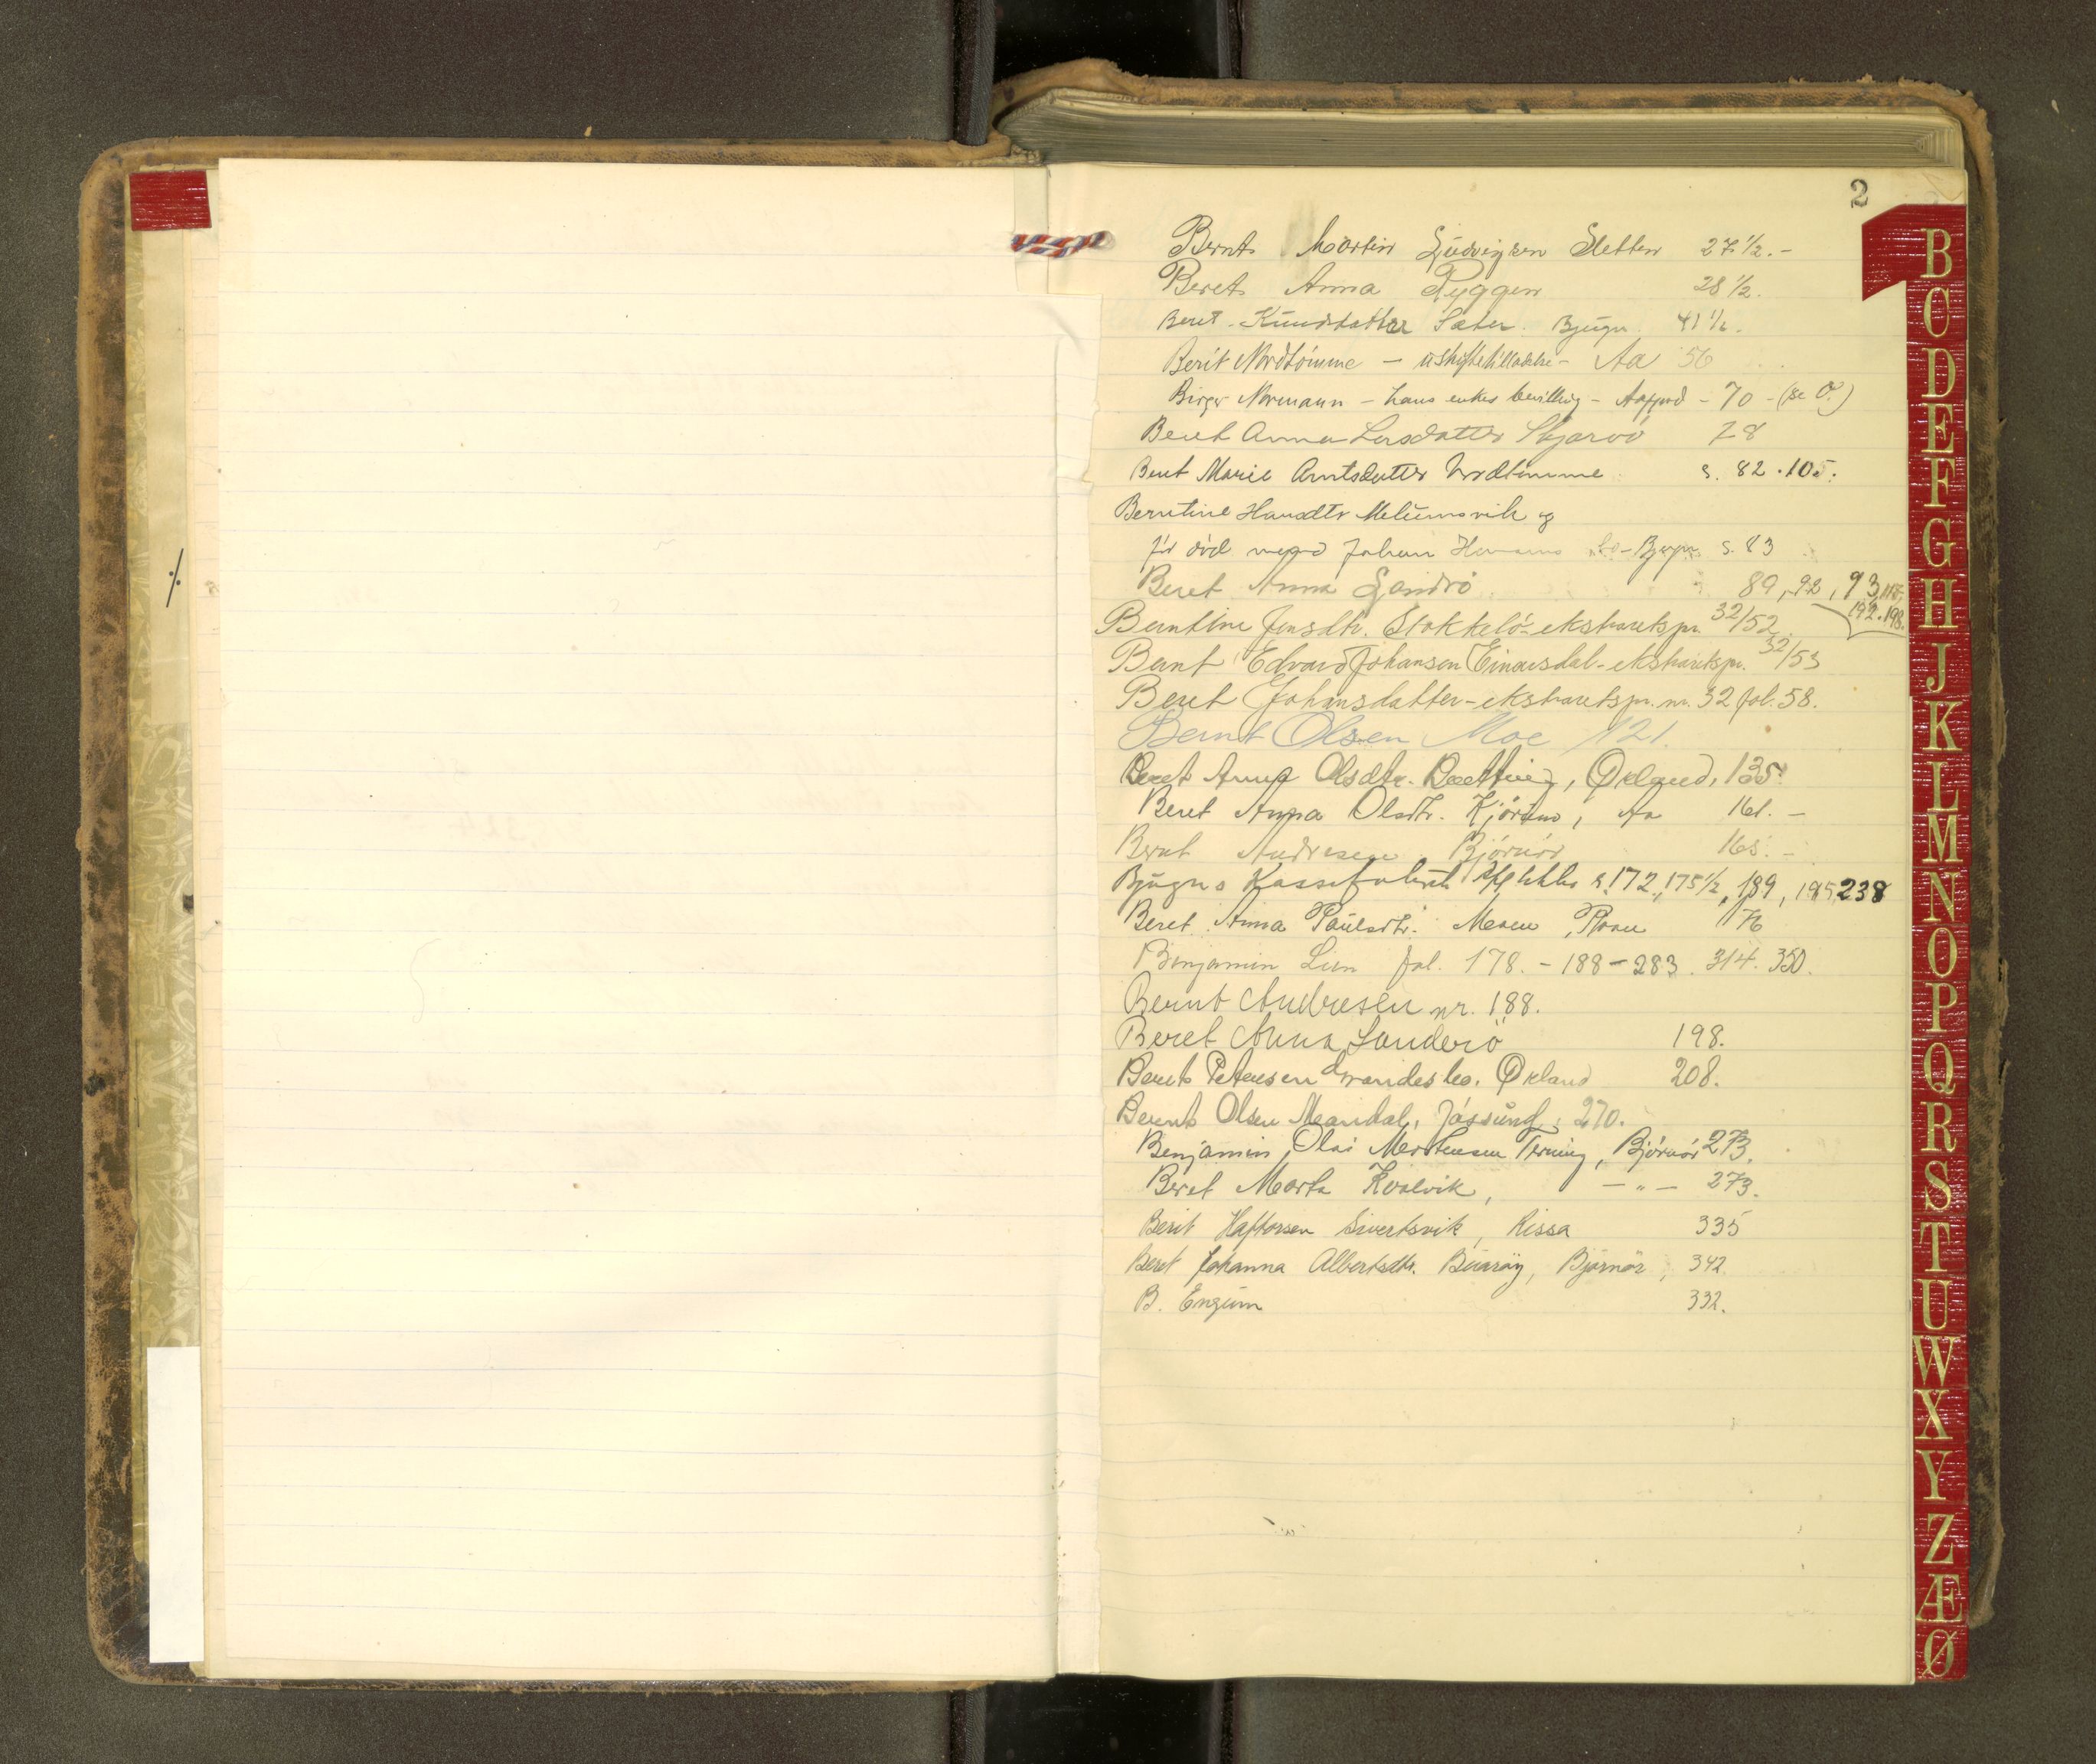 2
Bernt Martin Ludvigsen Sletten 27 1/2. -
Beret Anna Ryggen 28 1/2.
Beret Knudsdatter Sæter. Bjugn. 41 1/2.
Berit Nordtömme - uskiftetilladelse - Aa 56
Birger Normann - hans enkes bevilling - Aafjord - 70 - (se O.)
Beret Anna Larsdatter Skjærvö 78
Beret Marie Arntsdatter Nordtömme s. 82. 105.
Berntine Hansdtr Melumsvik og
för död mand Johan - Bjugn s. 83
Beret Anna Sandrö 89, 92, 93, 115,
192. 198.
Berntine Jensdtr. Stokkelö - ekstraretspr. 32/52
Bernt Edvard Johansen Einarsdal - ekstraretspr. 32/53
Beret Johansdatter - ekstraretspr. nr. 32 fol. 58.
Bernt Olsen Moe 121.
Beret Anna Olsdtr. Ørland, 135.
Beret Anna Olsdtr. Kjöråen, Aa 161. -
Bernt Andresen Björnör 165. -
Bjugns s. 172, 175 1/2, 189, 195 238
Beret Anna Paulsdtr. Roan 176
Benjamin Lien fol. 178. - 188 - 283. 314. 350.
Bernt Andresen nr. 188.
Beret Anna Sanderö 198.
Bernt Petersen Ørland 208.
Bernt Olsen Mandal, Jössund, 270.
Benjamin Olai Mortensen Terning, Björnör 273.
Beret Marta Kvalvik, - " - 273.
Berit Haftorsen Sivertsvik, Rissa 335
Beret Johanna Albertsdtr. Buarøy, Bjørnør, 342
B. Engum 332.
B
C
D
E
F
G
H
J
K
L
M
N
O
P
Q
R
S
T
U
W
X
Y
Z
Æ
Ø